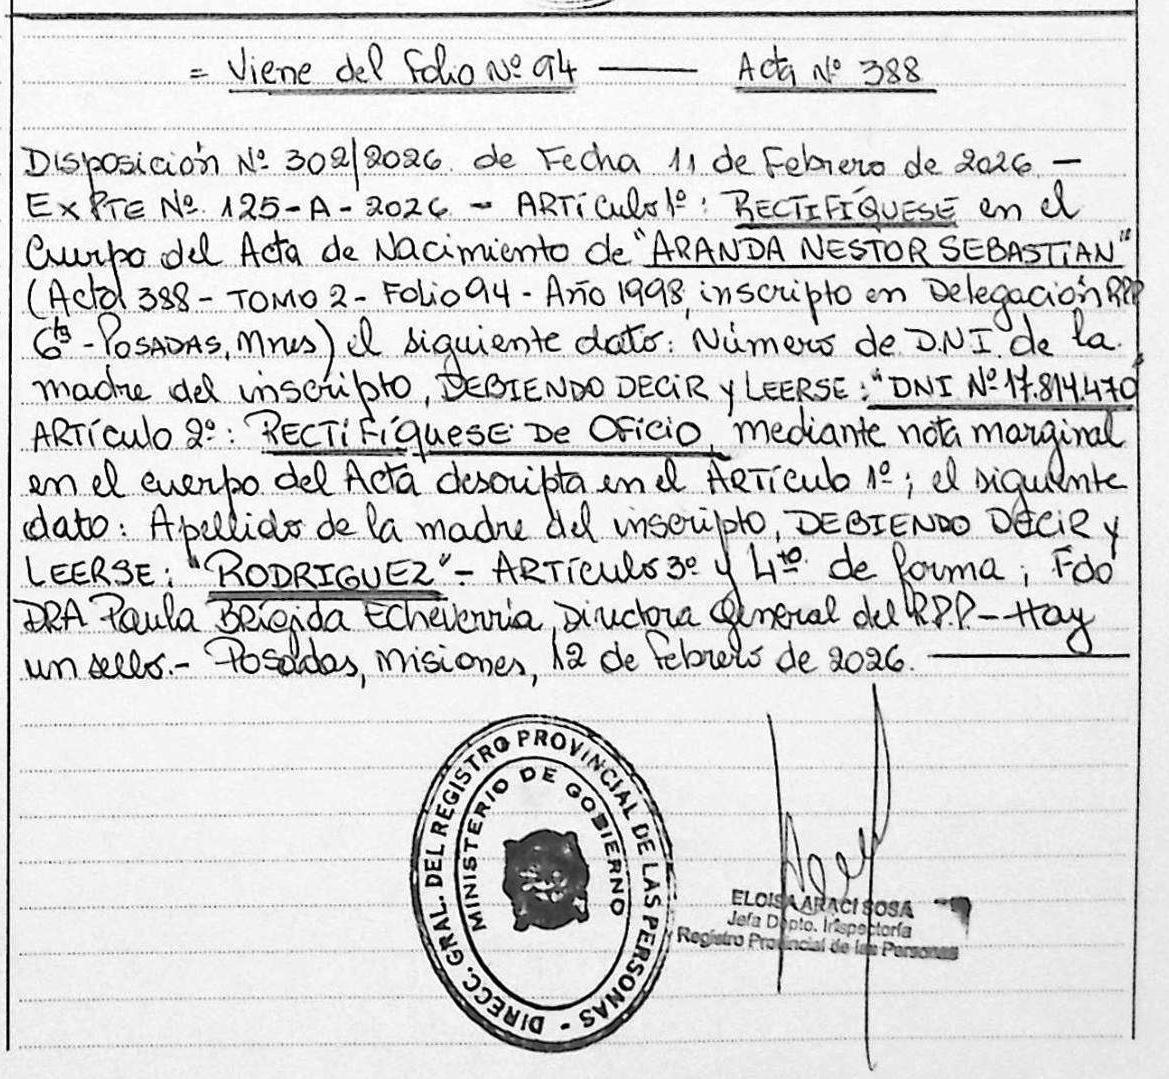 = Viene del Folio Nº 94 — Acta Nº 388
Disposición Nº 302/2026. de Fecha 11 de Febrero de 2026 –
ExPTE Nº 125-A-2026 – ARTículo 1º: RECTIFÍQUESE en el
Cuerpo del Acta de Nacimiento de "ARANDA NESTOR SEBASTIAN"
(Acta 388 - TOMO 2 - Folio 94 - Año 1998, inscripto en Delegación RPP
6ta - POSADAS, Mnes) el siguiente dato: Número de D.N.I. de la
madre del inscripto, DEBIENDO DECIR y LEERSE: "DNI Nº 17.814.470"
ARTículo 2º: RECTIFíQUESE DE OFicio, mediante nota marginal
en el cuerpo del Acta descripta en el ARTículo 1º; el siguiente
dato: Apellido de la madre del inscripto, DEBIENDO DECIR y
LEERSE: "RODRIGUEZ" – ARTículos 3º y 4to de forma; Fdo
DRA Paula BRígida Echeverría, Directora General del R.P.P. – Hay
un sello.- Posadas, Misiones, 12 de Febrero de 2026.
DIRECC. GRAL. DEL REGISTRO PROVINCIAL DE LAS PERSONAS -
MINISTERIO DE GOBIERNO
ELOISA ARACI SOSA
Jefa Dpto. Inspectoría
Registro Provincial de las Personas